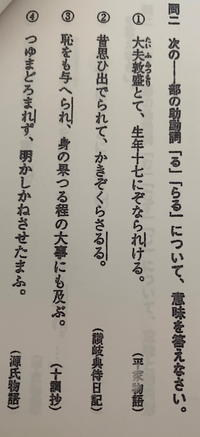 問二　次の――部の助動詞「る」「らる」について、意味を答えなさい。
①　大夫敦盛とて、生年十七にぞなられける。（平家物語）
②　昔思ひ出でられて、かきぞくらさるる。（讃岐典侍日記）
③　恥をも与へられ、身の果つる程の大事にも及ぶ。（十訓抄）
④　つゆまどろまれず、明かしかねさせたまふ。（源氏物語）